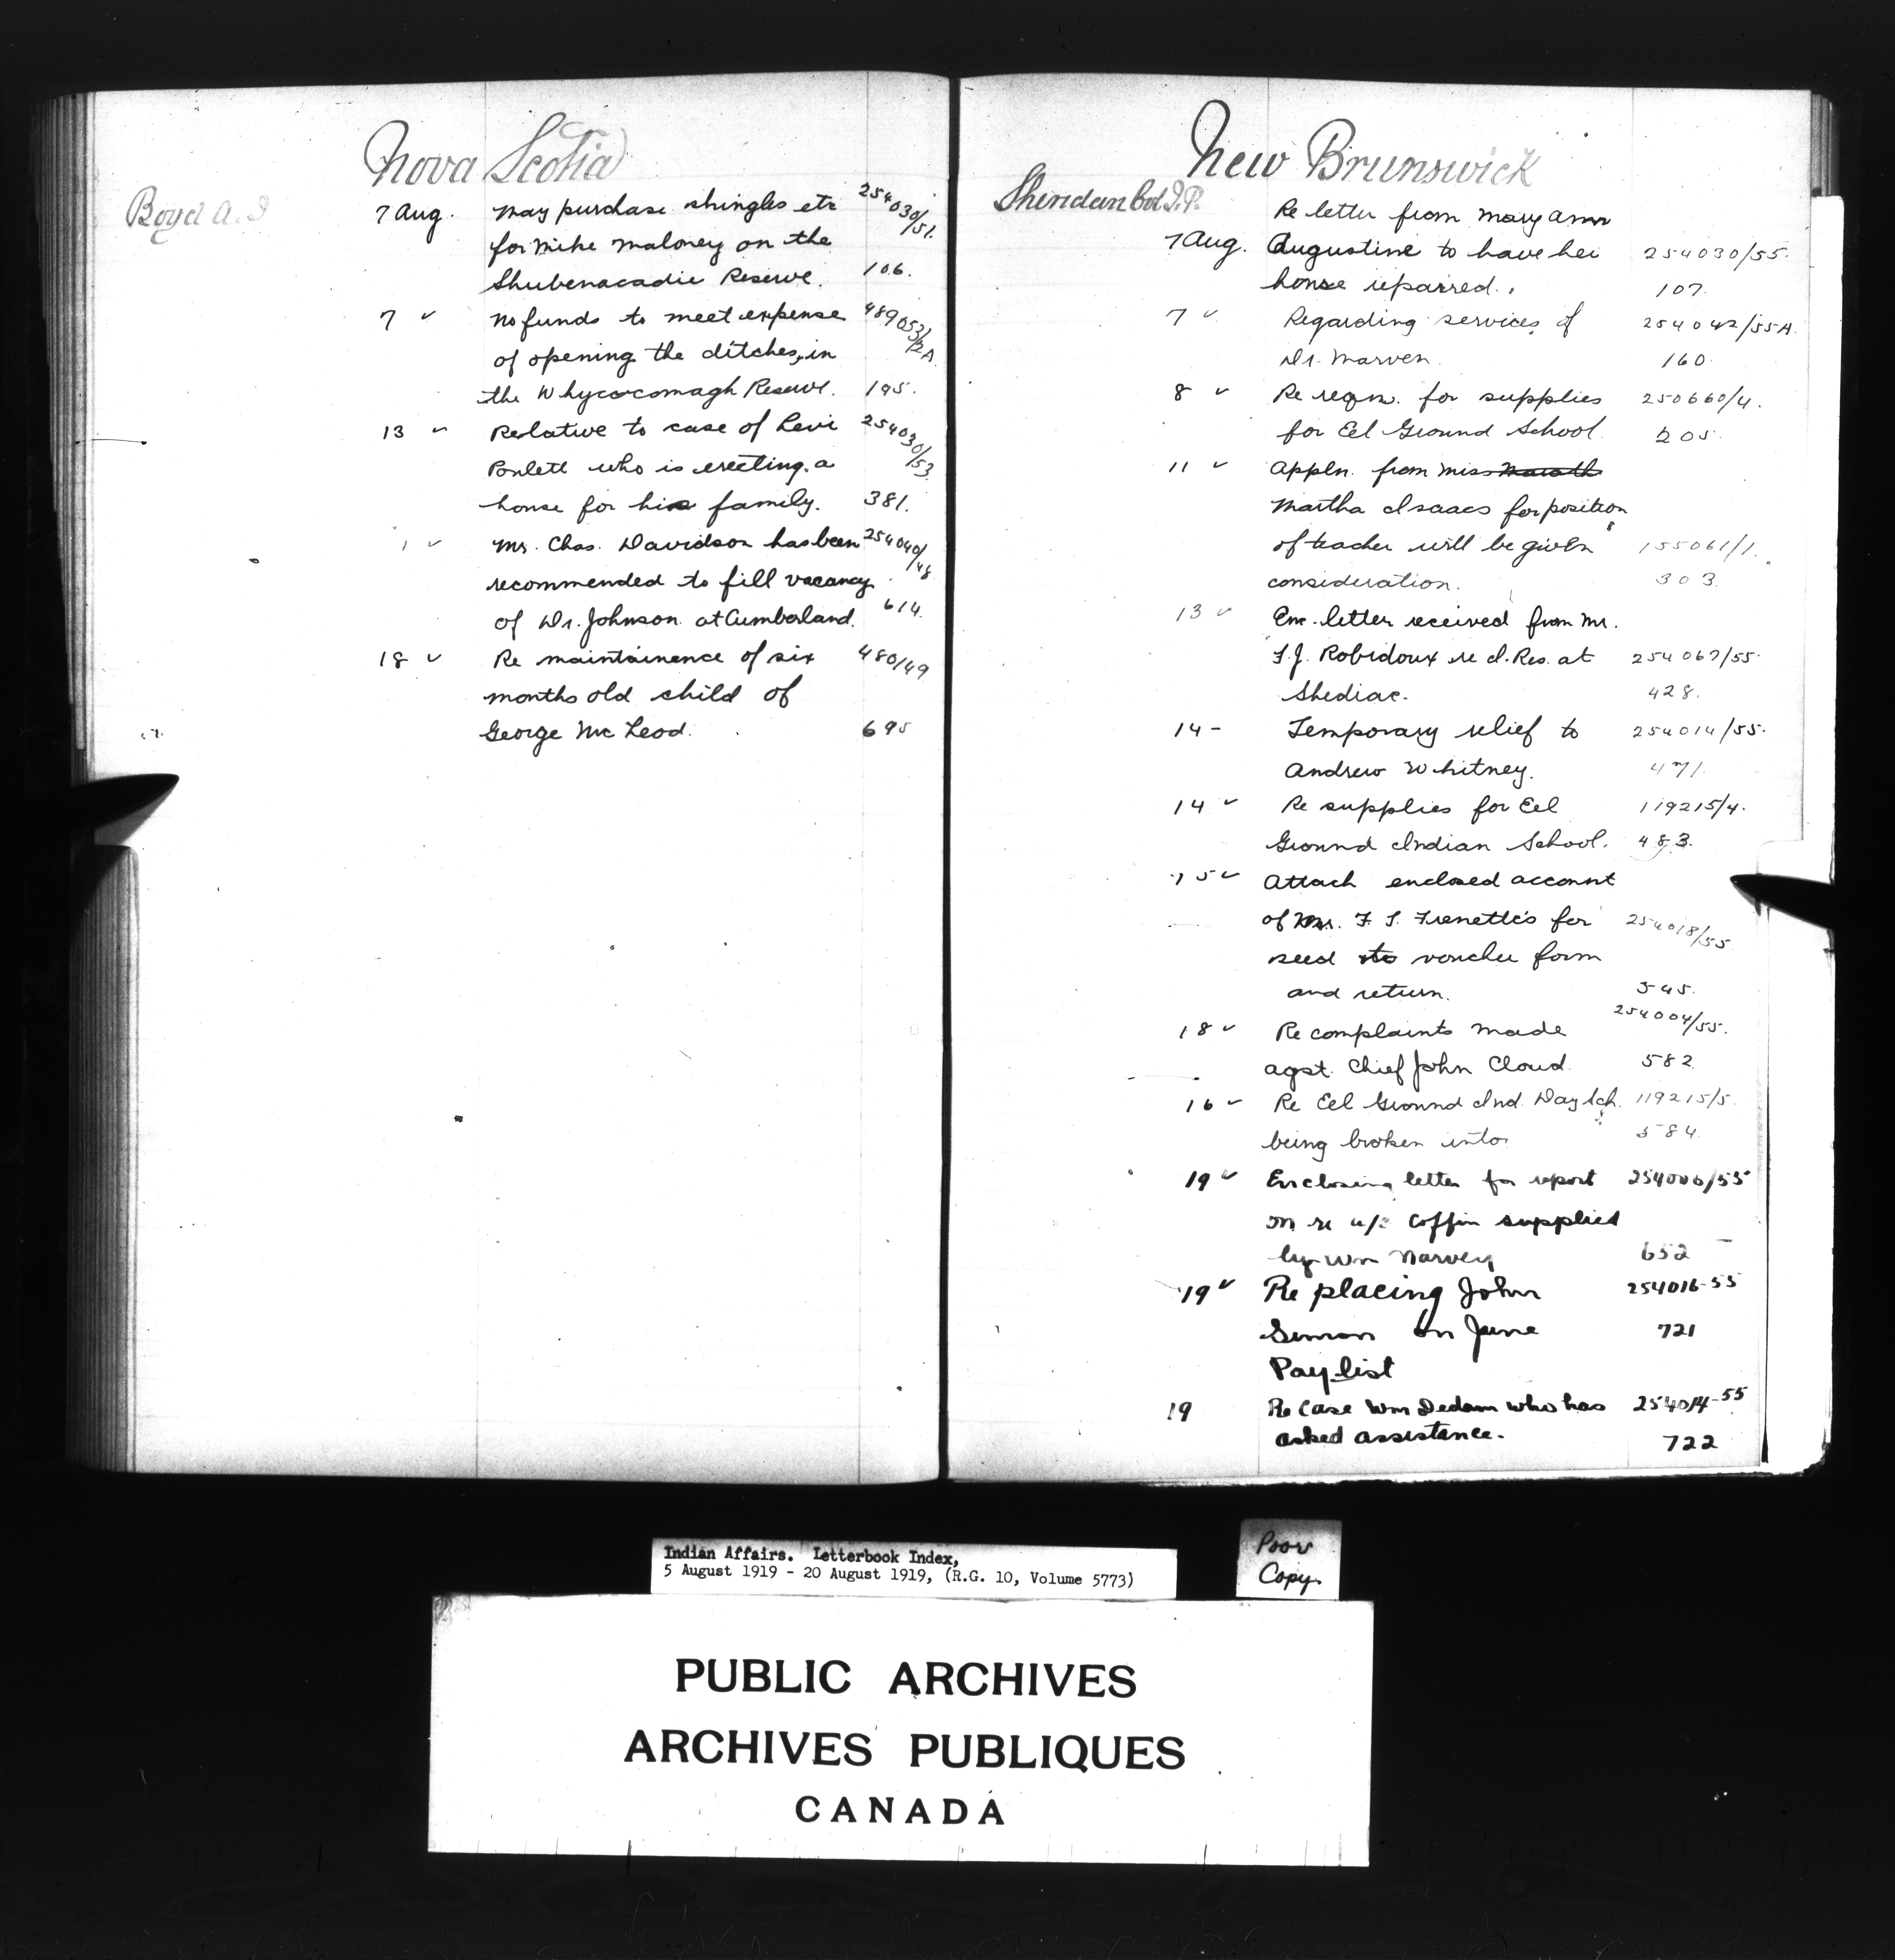 Nova Scotia
Boyd A. J
7 Aug. May purchase shingles etc 254030/51.
for Mike Maloney on the
Shubenacadie Reserve. 106.
7 " No funds to meet expense 489053/2A
of opening the ditches, in
the Whycocomagh Reserve. 195.
13 " Relative to case of Levi 254030/53.
Poulett who is erecting a
house for his family. 381.
" Mr. Chas. Davidson has been 254040/48
recommended to fill vacancy
of Dr. Johnson at Cumberland. 614.
18 " Re maintainence of six 480/49
months old child of
George McLeod. 695
New Brunswick
Sheridan Col J.P.
Re letter from Mary Ann
7 Aug. Augustine to have her 254030/55.
house repaired. 107.
7 " Regarding services of 254042/55A.
Dr. Marven. 160.
8 " Re reqn. for supplies 250660/4.
for Eel Ground School. 205.
11 " Appln. from Miss
Martha Isaacs for position
of teacher will be given 155061/1.
consideration. 303.
13 " Enc. letter received from Mr.
F. J. Robidoux re I. Res. at 254067/55.
Shediac. 428.
14 - Temporary relief to 254014/55.
Andrew Whitney. 471
14 " Re supplies for Eel 119215/4.
Ground Indian School. 483.
15 " Attach enclosed account
of Mr. F. T. Frenette's for 254018/55
seed to voucher form
and return. 545.
18 " Re complaints made 254004/55.
agst. Chief John Cloud. 582
16 " Re Eel Ground Ind. Day Sch. 119215/5.
being broken into 584.
19 " Enclosing letter for report 254006/55
re a/c coffin supplied
by Wm Harvey 652
19 " Re placing John 254016-55
Simon on June 721
Pay list
19 Re Case Wm Dedam who has 254014-55
asked assistance. 722
Indian Affairs. Letterbook Index,
5 August 1919 - 20 August 1919, (R.G. 10, Volume 5773)
Poor
Copy.
PUBLIC ARCHIVES
ARCHIVES PUBLIQUES
CANADA